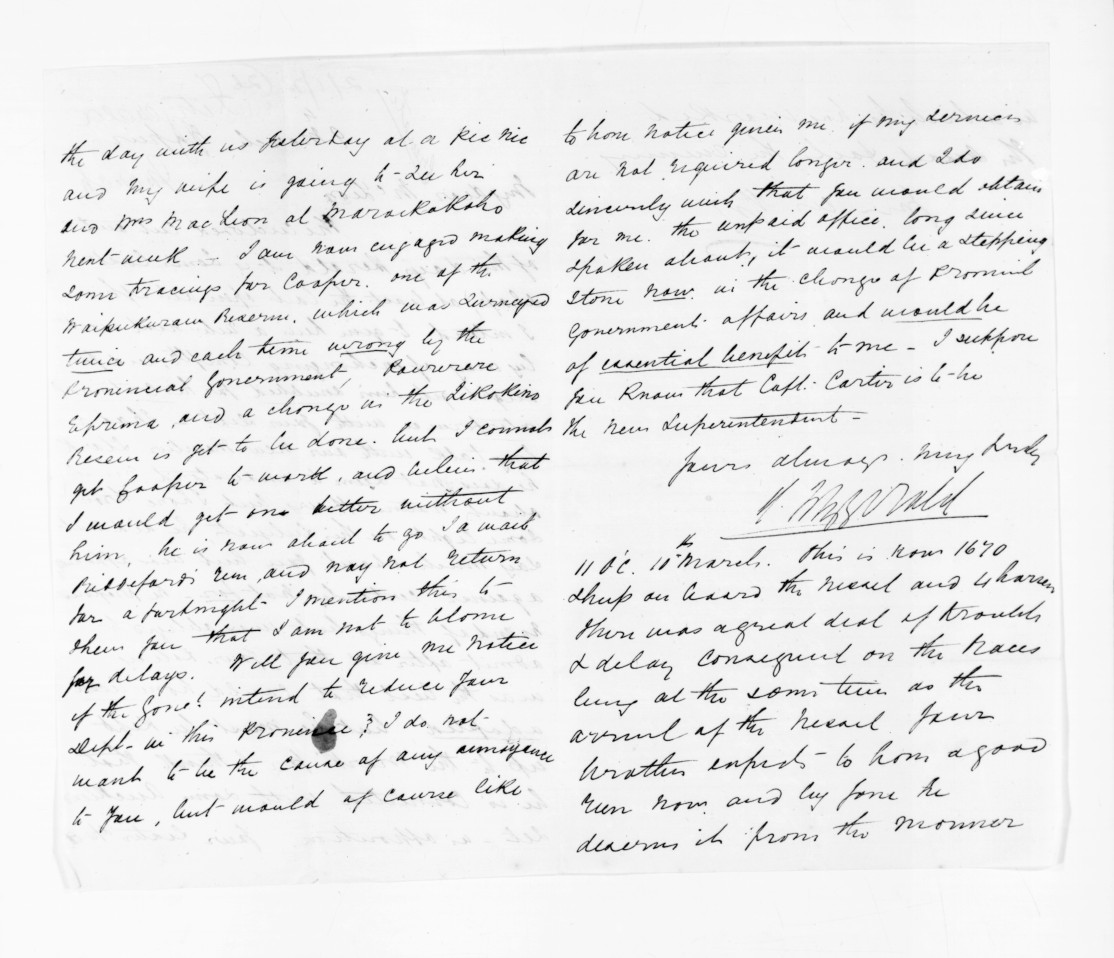 the day with us yesterday at a Pic Nic
and my wife is going to see her
and Mrs MacLeon at Maraekakaho
next week — I am now engaged making
some tracings for Cooper. one of the
Waipukurau Reserve, which was surveyed
twice and each time wrong by the
Provincial Government,
and a change in the Tikokino
Reserve is yet to be done. but I cannot
get Cooper to work, and believe that
I would get on better without
him, he is now about to go
run, and may not return
for a fortnight I mention this to
shew you that I am not to blame
for delays. Will you give me notice
if the Govt. intend to reduce your
Dept. in this Province? I do not
want to be the cause of any annoyance
to you, but would of course like
to have notice given me. if my services
are not required longer. and I do
sincerely wish that you would obtain
for me. the unpaid office. long since
spoken about, it would be a stepping
stone now. in the change of Provincil
Government affairs and would be
of essential benefit to me — I suppose
you know that Capt. Carter is to be
the new Superintendent —
Yours always.
FitzGerald
11 O'C. 10th March. This is now 1670
sheep on board the vessel and 4 horses
there was a great deal of trouble
& delay consequent on the Races
being at the same time as the
arrival of the vessel your
brother expects to have a good
run now. and by Jove he
deserves it from the manner